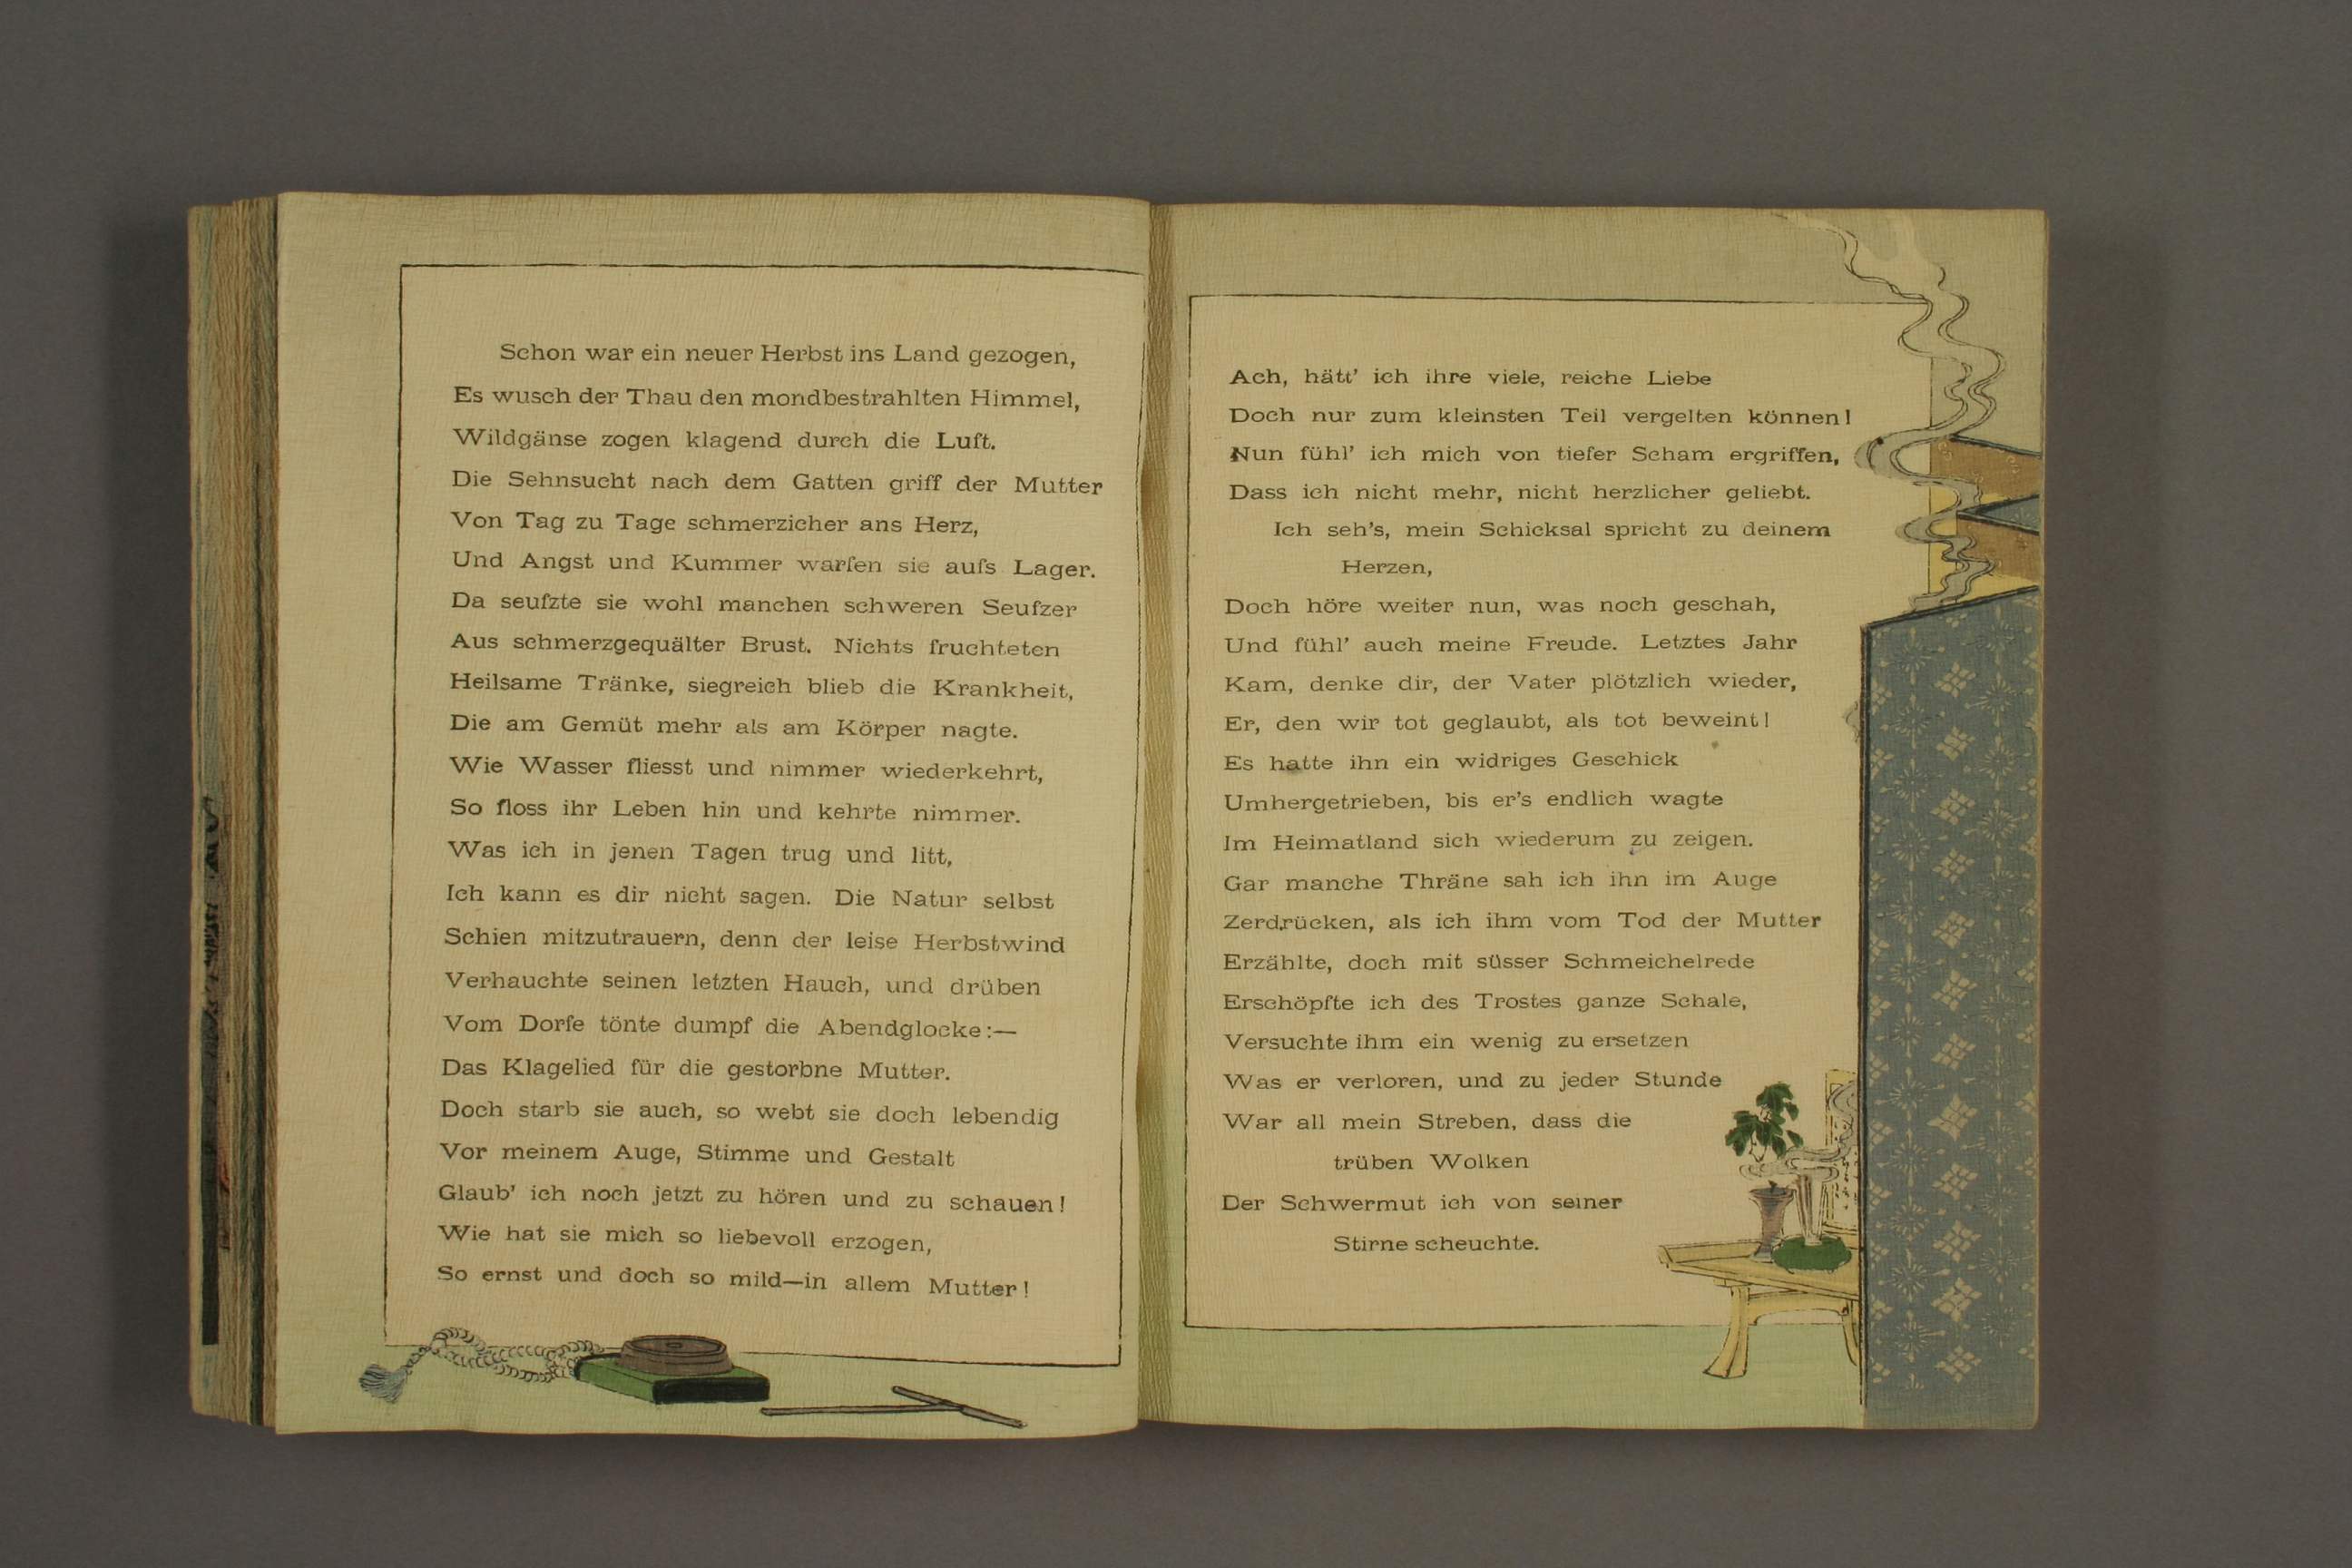 Schon war ein neuer Herbst ins Land gezogen,
Es wusch der Thau den mondbestrahlten Himmel,
Wildgänse zogen klagend durch die Luft.
Die Sehnsucht nach dem Gatten griff der Mutter
Von Tag zu Tage schmerzicher ans Herz,
Und Angst und Kummer warfen sie aufs Lager.
Da seufzte sie wohl manchen schweren Seufzer
Aus schmerzgequälter Brust. Nichts fruchteten
Heilsame Tränke, siegreich blieb die Krankheit,
Die am Gemüt mehr als am Körper nagte.
Wie Wasser fliesst und nimmer wiederkehrt,
So floss ihr Leben hin und kehrte nimmer.
Was ich in jenen Tagen trug und litt,
Ich kann es dir nicht sagen. Die Natur selbst
Schien mitzutrauern, denn der leise Herbstwind
Verhauchte seinen letzten Hauch, und drüben
Vom Dorfe tönte dumpf die Abendglocke:—
Das Klagelied für die gestorbne Mutter.
Doch starb sie auch, so webt sie doch lebendig
Vor meinem Auge, Stimme und Gestalt
Glaub' ich noch jetzt zu hören und zu schauen!
Wie hat sie mich so liebevoll erzogen,
So ernst und doch so mild—in allem Mutter!
Ach, hätt' ich ihre viele, reiche Liebe
Doch nur zum kleinsten Teil vergelten können!
Nun fühl' ich mich von tiefer Scham ergriffen,
Dass ich nicht mehr, nicht herzlicher geliebt.
Ich seh's, mein Schicksal spricht zu deinem
Herzen,
Doch höre weiter nun, was noch geschah,
Und fühl' auch meine Freude. Letztes Jahr
Kam, denke dir, der Vater plötzlich wieder,
Er, den wir tot geglaubt, als tot beweint!
Es hatte ihn ein widriges Geschick
Umhergetrieben, bis er's endlich wagte
Im Heimatland sich wiederum zu zeigen.
Gar manche Thräne sah ich ihn im Auge
Zerdrücken, als ich ihm vom Tod der Mutter
Erzählte, doch mit süsser Schmeichelrede
Erschöpfte ich des Trostes ganze Schale,
Versuchte ihm ein wenig zu ersetzen
Was er verloren, und zu jeder Stunde
War all mein Streben, dass die
trüben Wolken
Der Schwermut ich von seiner
Stirne scheuchte.